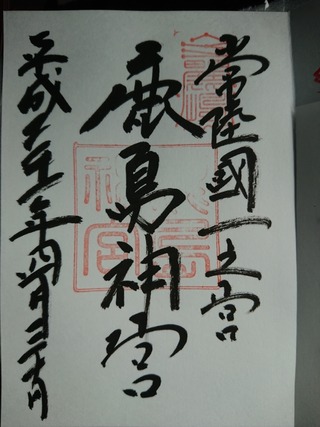 常陸國一之宮
鹿島神宮
平成二十二年四月三十日